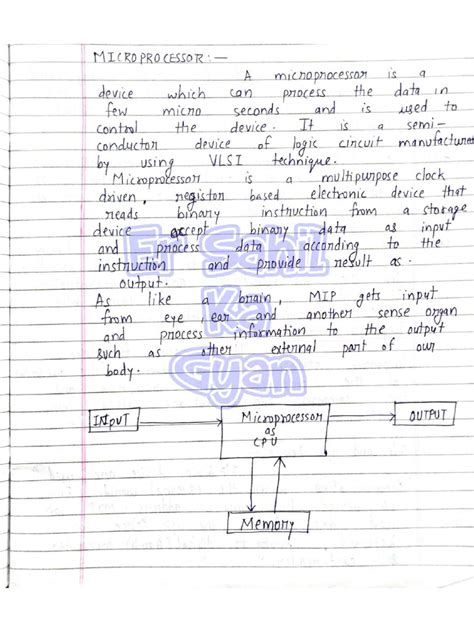 MICROPROCESSOR:—
A microprocessor is a
device which can process the data in
few micro seconds and is used to
control the device. It is a semi-
conductor device of logic circuit manufactured
by using VLSI technique.
Microprocessor is a multipurpose clock
driven, registor based electronic device that
reads binary instruction from a storage
device accept binary data as input
and process data according to the
instruction and provide result as.
output.
As like a brain, MIP gets input
from eye ear and another sense organ
and process information to the output
such as other external part of our
body.
Er Sahil
Ka
Gyan
INPUT
Microprocessor
as
CPU
OUTPUT
Memory